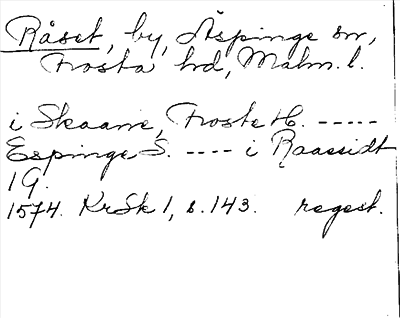 Råset, by, Äspinge sn,
Frosta hd, Malm. l.
i Skaane, Froste H. -----
Espinge S. ---- i Raassidt
1 G.
1574. KrSk 1, s. 143. regest.